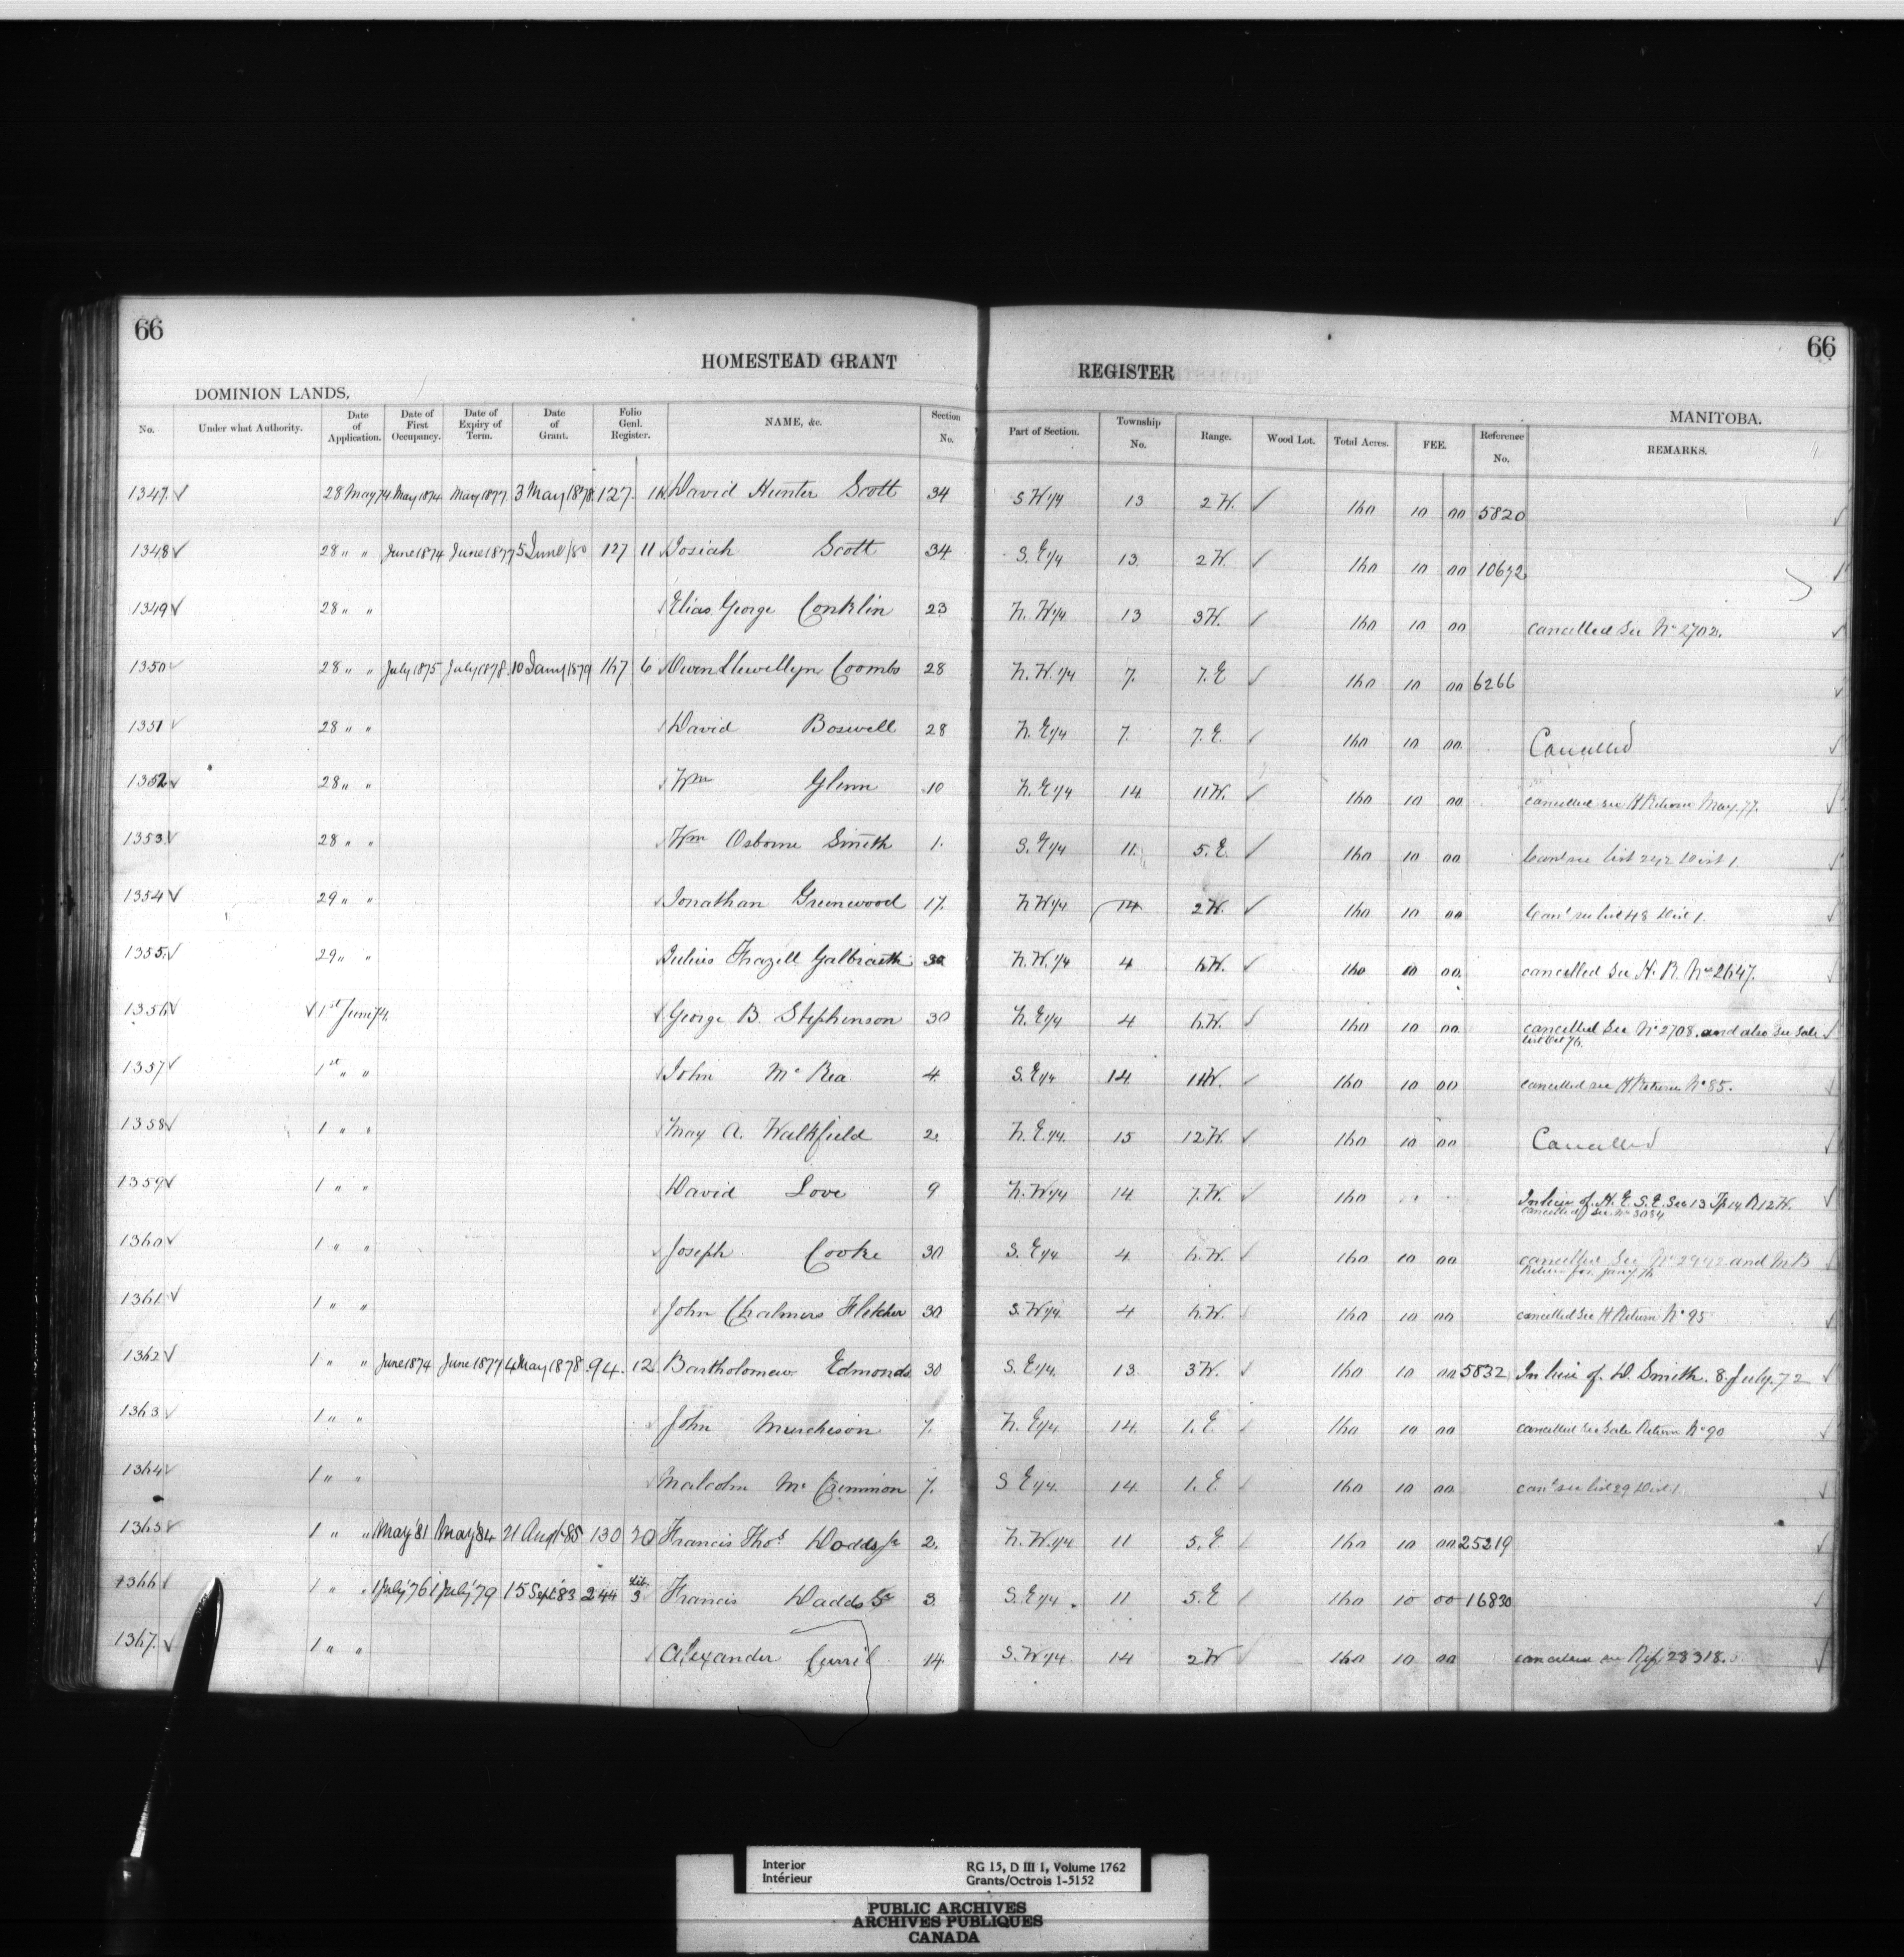 66
66
HOMESTEAD GRANT REGISTER
DOMINION LANDS, MANITOBA.
No. Under what Authority. Date of Application. Date of First Occupancy. Date of Expiry of Term. Date of Grant. Folio Genl. Register. NAME, &c. Section No. Part of Section. Township No. Range. Wood Lot. Total Acres. FEE. Reference No. REMARKS.
1347. 28 May 74 May 1874 May 1877 3 May 1878 127 David Hunter Scott 34 S W 1/4 13 2 W. 160 10 00 5820
1348 28 " " June 1874 June 1877 5 June /80 127 11 Josiah Scott 34 S. E 1/4 13 2 W. 160 10 00 10672
1349 28 " " Elias George Conklin 23 N. W 1/4 13 3 W. 160 10 00 cancelled See No 2702.
1350 28 " " July 1875 July 1878 10 Jany 1879 167 6 Owen Llewellyn Coombs 28 N. W. 1/4 7. 7. E 160 10 00 6266
1351 28 " " David Boswell 28 N. E 1/4 7. 7. E. 160 10 00 Cancelled
1352 28 " " Wm Glenn 10 N. E 1/4 14 11 W. 160 10 00 cancelled see H Return May. 77.
1353 28 " " Wm Osborne Smith 1. S. E 1/4 11. 5. E. 160 10 00 Cand see list 242 Dist 1.
1354 29 " " Jonathan Greenwood 17. N W 1/4 14 2 W. 160 10 00 Can'd see list 48 Dist 1.
1355. 29 " " Julius Frazell Galbraith 30 N. W. 1/4 4 6 W. 160 10 00 cancelled See H. R. No 2647.
1356 1st June 74. George B. Stephenson 30 N. E 1/4 4 6. W. 160 10 00 cancelled See No 2708. and also See Sale
list Oct 76.
1357 1st " " John Mc Rea 4. S. E 1/4 14. 11 W. 160 10 00 cancelled see H Return No 85.
1358 1 " " May A. Walkfield 2. N. E. 1/4. 15 12 W. 160 10 00 Cancelled
1359 1 " " David Love 9 N. W 1/4 14 7. W. 160 In lieu of. H. E. S. E. Sec 13 Tp 14 R 12 W.
cancelled see No 3084
1360 1 " " Joseph Cooke 30 S. E 1/4. 4 6. W. 160 10 00 cancelled See No and M B
Return for Jany 76
1361 1 " " John Chalmers Fletcher 30 S. W 1/4. 4 6. W. 160 10 00 cancelled See H Return No 95
1362 1 " " June 1874 June 1877 4 May 1878 94. 12 Bartholomew Edmonds 30 S. E 1/4. 13. 3 W. 160 10 00 5832 In lieu of. D. Smith. 8. July. 72
1363 1 " " John Murcheson 7. N. E 1/4 14. 1. E 160 10 00 cancelled See Sale Return No 90
1364 1 " " Malcolm Mc Crimmon 7. S E 1/4. 14 1. E 160 10 00 can'd see list 89 Dist 1
1365 1 " " May '81 May '84 21 Aug '85 130 20 Francis Thos. Dodds Jr 2. N. W. 1/4 11 5. E 160 10 00 25219
1366 1 " " 1 July '76 1 July '79 15 Sept '83 244 Lib. 3 Francis Dadds Sr 3 S. E 1/4. 11 5. E 160 10 00 16830
1367. 1 " " Alexander Currie 14. S. W 1/4. 14 2 W 160 10 00 cancelled see Ref 28318.
Interior RG 15, D III 1, Volume 1762
Intérieur Grants/Octrois 1-5152
PUBLIC ARCHIVES
ARCHIVES PUBLIQUES
CANADA